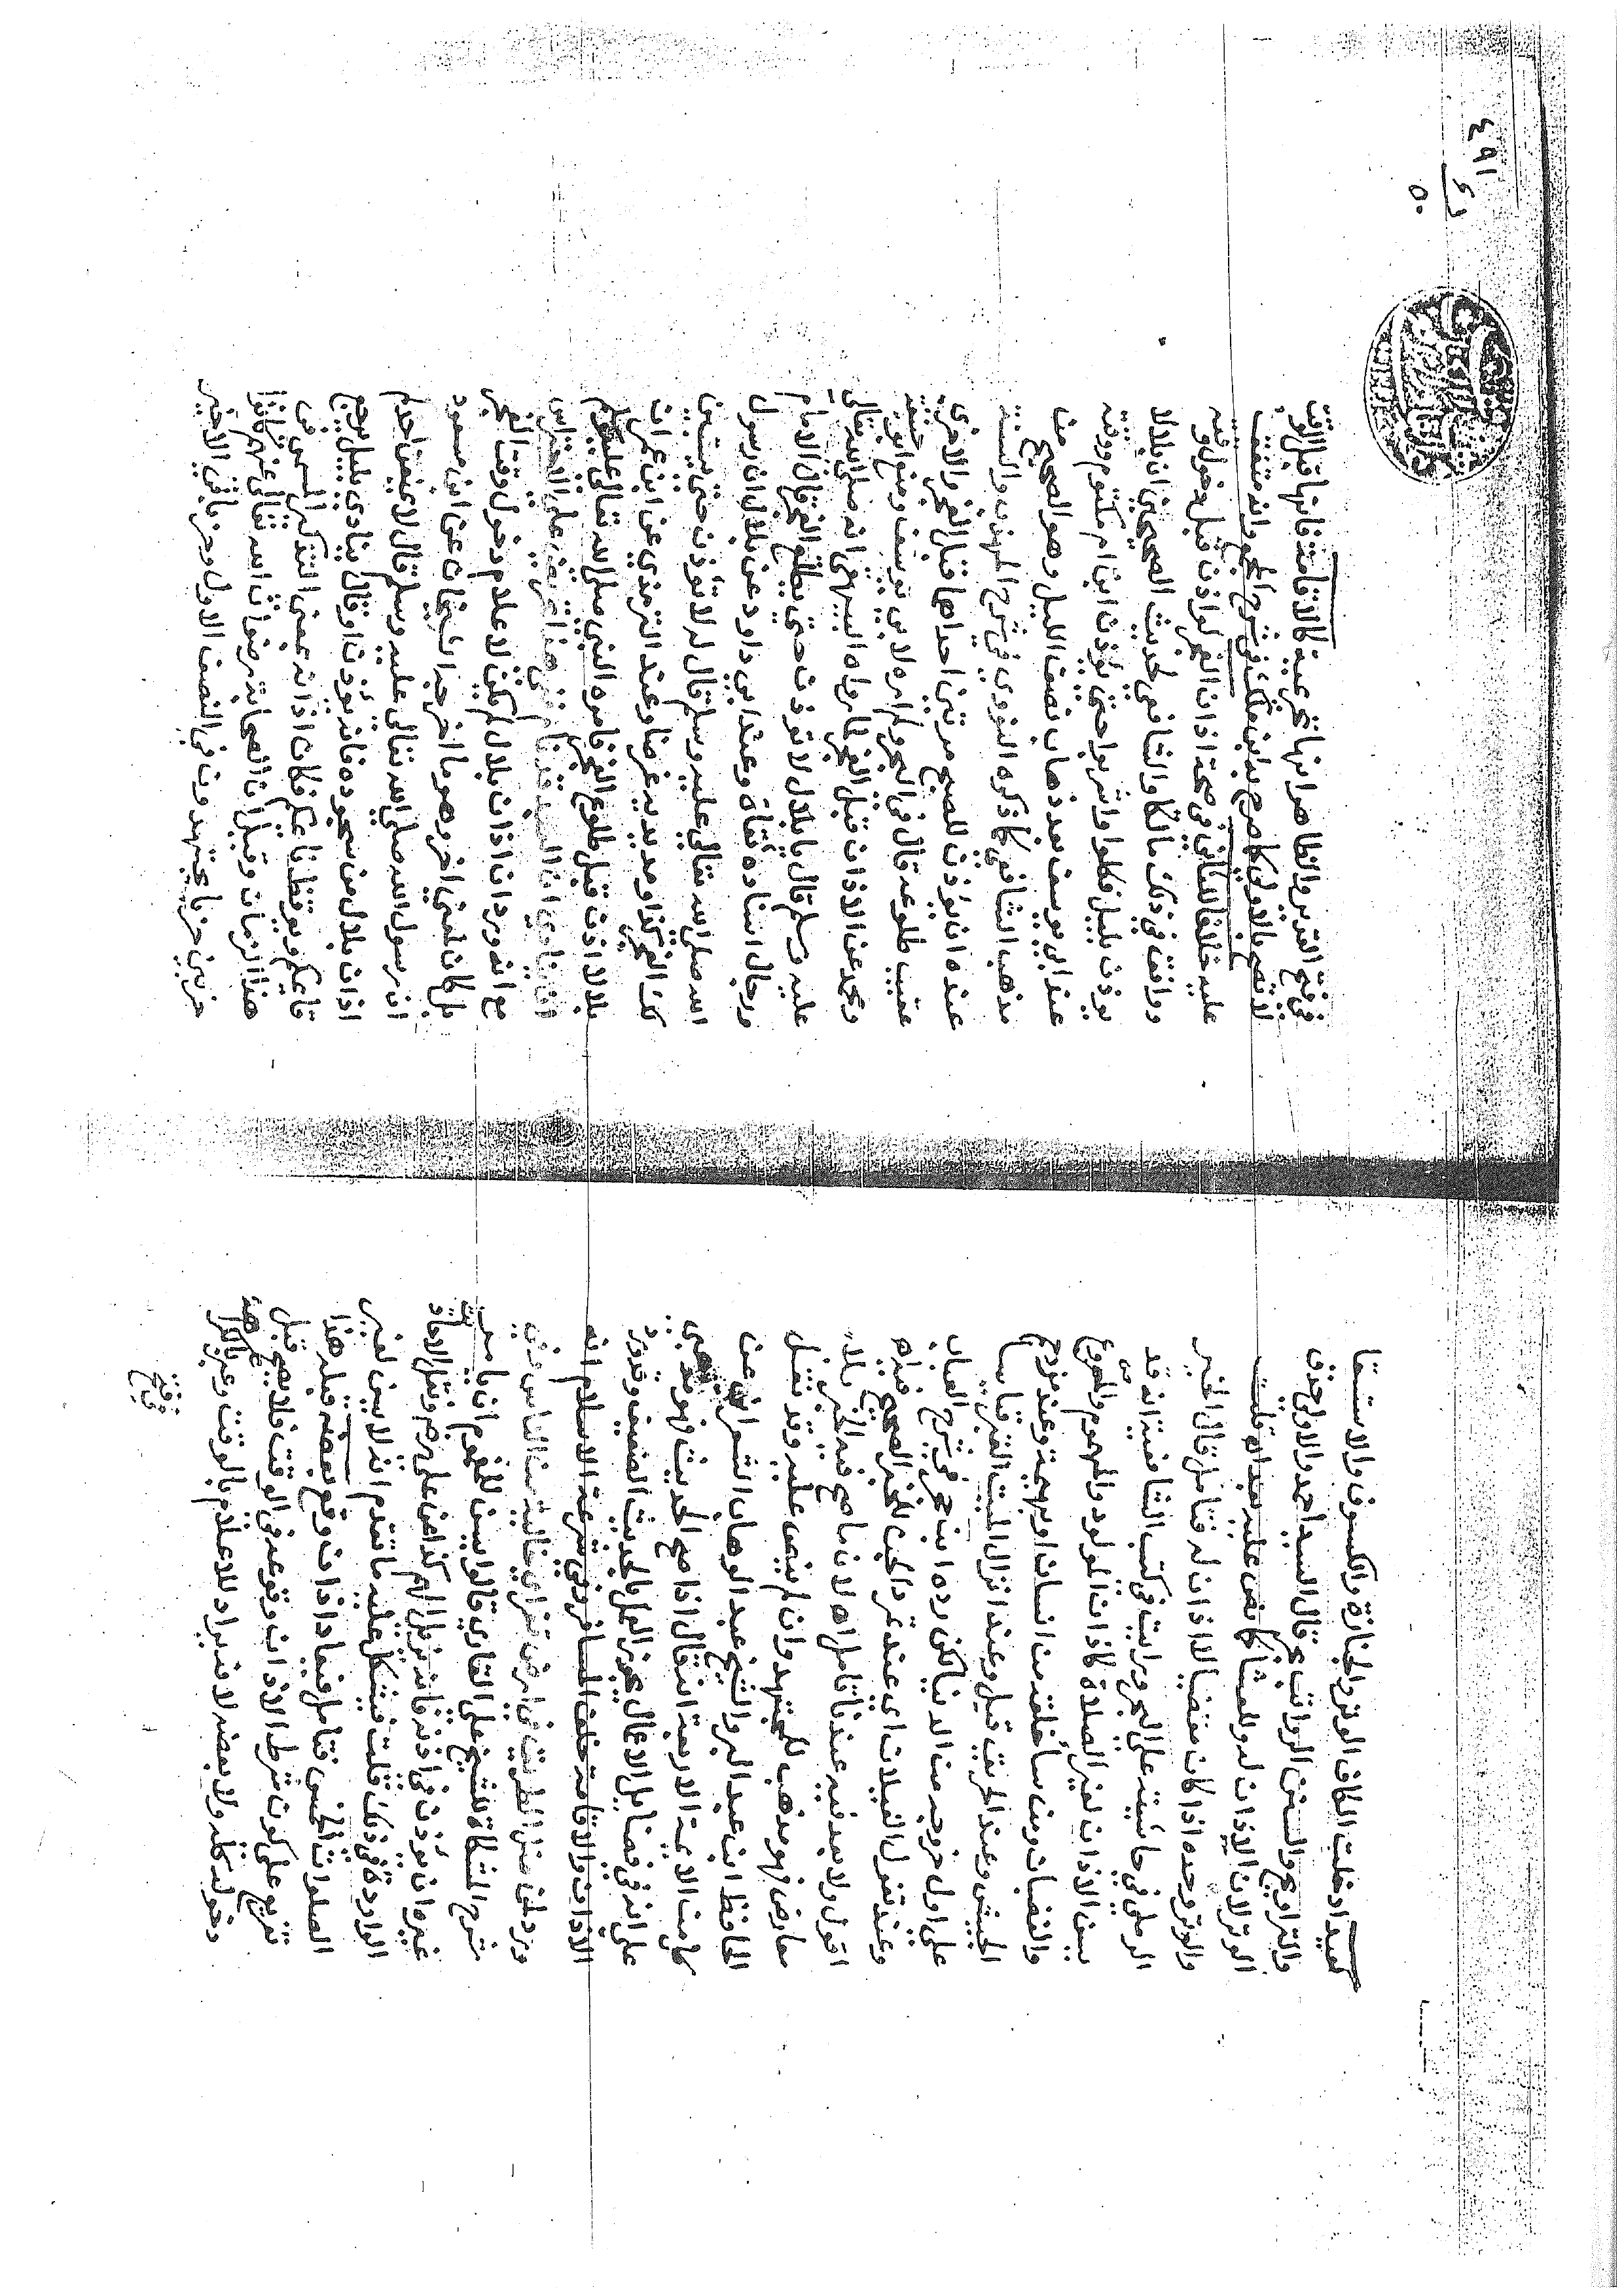 كعيد ادخلت الكاف الوتر والجنازة والكسوف والاستسقا
والتراويح والسنن الرواتب ح قال السيد احمد والاولى حذف
الوتر لان الاذان له وللعشا كما نص عليه بعد اه قلت
والوتر وحده اذا كان مقتضيا للاذان له فتامل قال الخير
الرملي في حاشيته على البحر ورايت في كتب الشافعية انه قد
يسن الاذان لغير الصلاة كاذان المولود والمهموم والمفزوع
والغضبان ومن ساء خلقه من انسان او بهيمة وعند مزدحم
الجيش وعند الحريق قيل وعند انزال الميت القبر قياسا
على اول خروجه من الدنيا لكن رده ابن حجر في شرح العباب
وعند تغول الغيلان اي عند تمرد الجن لخبر الصحيح فيه اه
اقول ولا بعد فيه عندنا تامل اه لان ما صح فيه الخبر بلا
معارض فهو مذهب للمجتهد وان لم ينص عليه وقد نقل
الحافظ ابن عبد البر والشيخ عبد الوهاب الشعراني عن
كل من الائمة الاربعة انه قال اذا صح الحديث فهو مذهبي
على انه في فضايل الاعمال يجوز العمل بالحديث الضعيف وقد زيد
الاذان والاقامة خلف المسافر وفي شرعة الاسلام انه
ومن ضل الطريق في ارض قفر اي خالية من الناس وفي
شرح المشكاة للشيخ علي القاري قالوا يسن للمهموم ان يامر
غيره ان يؤذن في اذنه فانه يزيل الهم كذا عن علي رضي ونقل الاحاديث
الواردة في ذلك قلت فيشكل عليه ما تقدم انه لا يسن لغير
الصلوات الخمس فتامل فيعاد اذان وقع بعضه قبله هذا
تفريع على كون شرط الاذان وقوعه في الوقت فلا يصح قبل
دخوله كله ولا بعضه لانه يراد للاعلام بالوقت وعن
في فتح القدير والظاهر انها تحريمية كالاقامة فانها قبل الوقت
لا تصح بالاولى كما صرح به ابن ملك في شرح المجمع وانه متفق
عليه خلافا للثاني في صحة اذان الفجر لو اذن قبل دخول وقته
ووافق في ذلك مالكا والشافعي لحديث الصحيحين ان بلالا
يؤذن بليل فكلوا واشربوا حتى يؤذن ابن ام مكتوم ووقته
عند ابي يوسف بعد ذهاب نصف الليل وهو الصحيح من
مذهب الشافعي كما ذكره النووي في شرح المهذب والسنة
عنده ان يؤذن للصبح مرتين احداها قبل الفجر والاخرى
عقيب طلوعه قال في البحر ولم اره لابي يوسف ومنع ابو حنيفة
ومحمد عن الاذان قبل الفجر لما رواه البيهقي انه صلى الله تعالى
عليه وسلم قال يا بلال لا تؤذن حتى يطلع الفجر قال الامام
ورجال اسناده ثقاة وعند ابي داود عن بلال ان رسول
الله صلى الله تعالى عليه وسلم قال له لا تؤذن حتى يستبين
لك الفجر هكذا ومد يديه عرضا وعند الترمذي عن ابن عمر ان
بلالا اذن قبل طلوع الفجر فامره النبي صلى الله تعالى عليه وسلم
ان ينادي ان العبد قد نام
مع انه ورد ان اذان بلال لم يكن لاعلام دخول وقت الفجر
بل كان لمعنى اخر وهو ما اخرجه الشيخان عن ابن مسعود
ان رسول الله صلى الله تعالى عليه وسلم قال لا يمنعن احدكم
اذان بلال من سحوره فانه يؤذن او قال ينادي بليل ليرجع
قائمكم ويوقظ نائمكم فكان اذانه بمعنى التذكير
هذا الزمان وقيل ان الصحابة رضوان الله تعالى عنهم كانوا
حزبين حزبا يتهجدون في النصف الاول وحزبا في الاخير